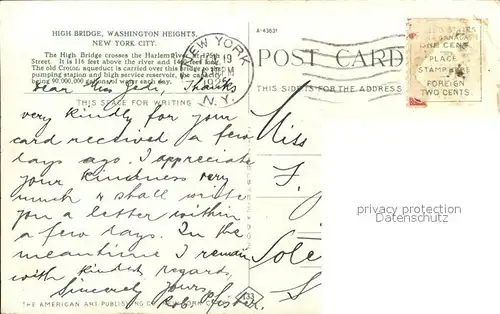 HIGH BRIDGE, WASHINGTON HEIGHTS,
NEW YORK CITY.
The High Bridge crosses the Harlem River at 175th
Street. It is 116 feet above the river and 14 feet
The old Croton aqueduct is carried over this bridge to the
pumping station and high service reservoir, the capacity
being 90,000,000 gallons of water each day.
THIS SPACE FOR WRITING
Dear Miss Thanks
very kindly for your
card received a few
days ago. I appreciate
your kindness very
much & shall write
you a letter within
a few days. In the
meantime I remain
with kindest regards,
Sincerely yours,
Rob. Pfister.
THE AMERICAN ART PUBLISHING CO. NEW YORK CITY
A-43631
NEW YORK
N.Y.
POST CARD
THIS SIDE IS FOR THE ADDRESS
ONE CENT
PLACE
STAMP HERE
FOREIGN
TWO CENTS.
Miss
F.
privacy protected
oldthing.de